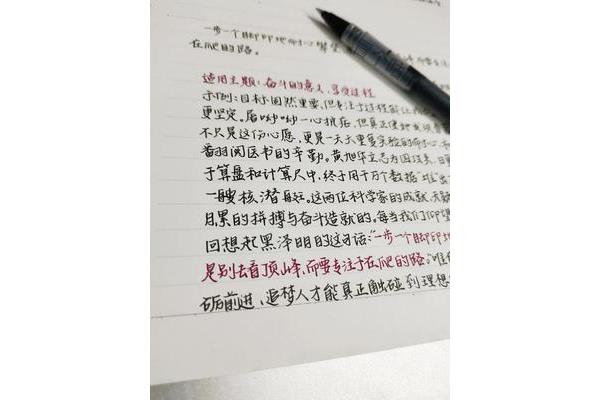 一步一个脚印地耐心攀登
在爬的路。
适用主题:奋斗的意义,享受过程
示例:目标固然重要,但专注于过程能让我
更坚定。屠呦呦一心抗疟,但真正使她
不只是这份心愿,更是一天天重复实验的耐心和
翻阅医书的辛勤。黄旭华立志为国铸艇,日
于算盘和计算尺中,终于用千万个数据
一艘核潜艇。这两位科学家的成就,无
月累的拼搏与奋斗造就的。每当我们仰望
回想起黑泽明的这句话:"一步一个脚印
是别去看顶峰,而要专注于在爬的路。"唯
砺前进,追梦人才能真正触碰到理想